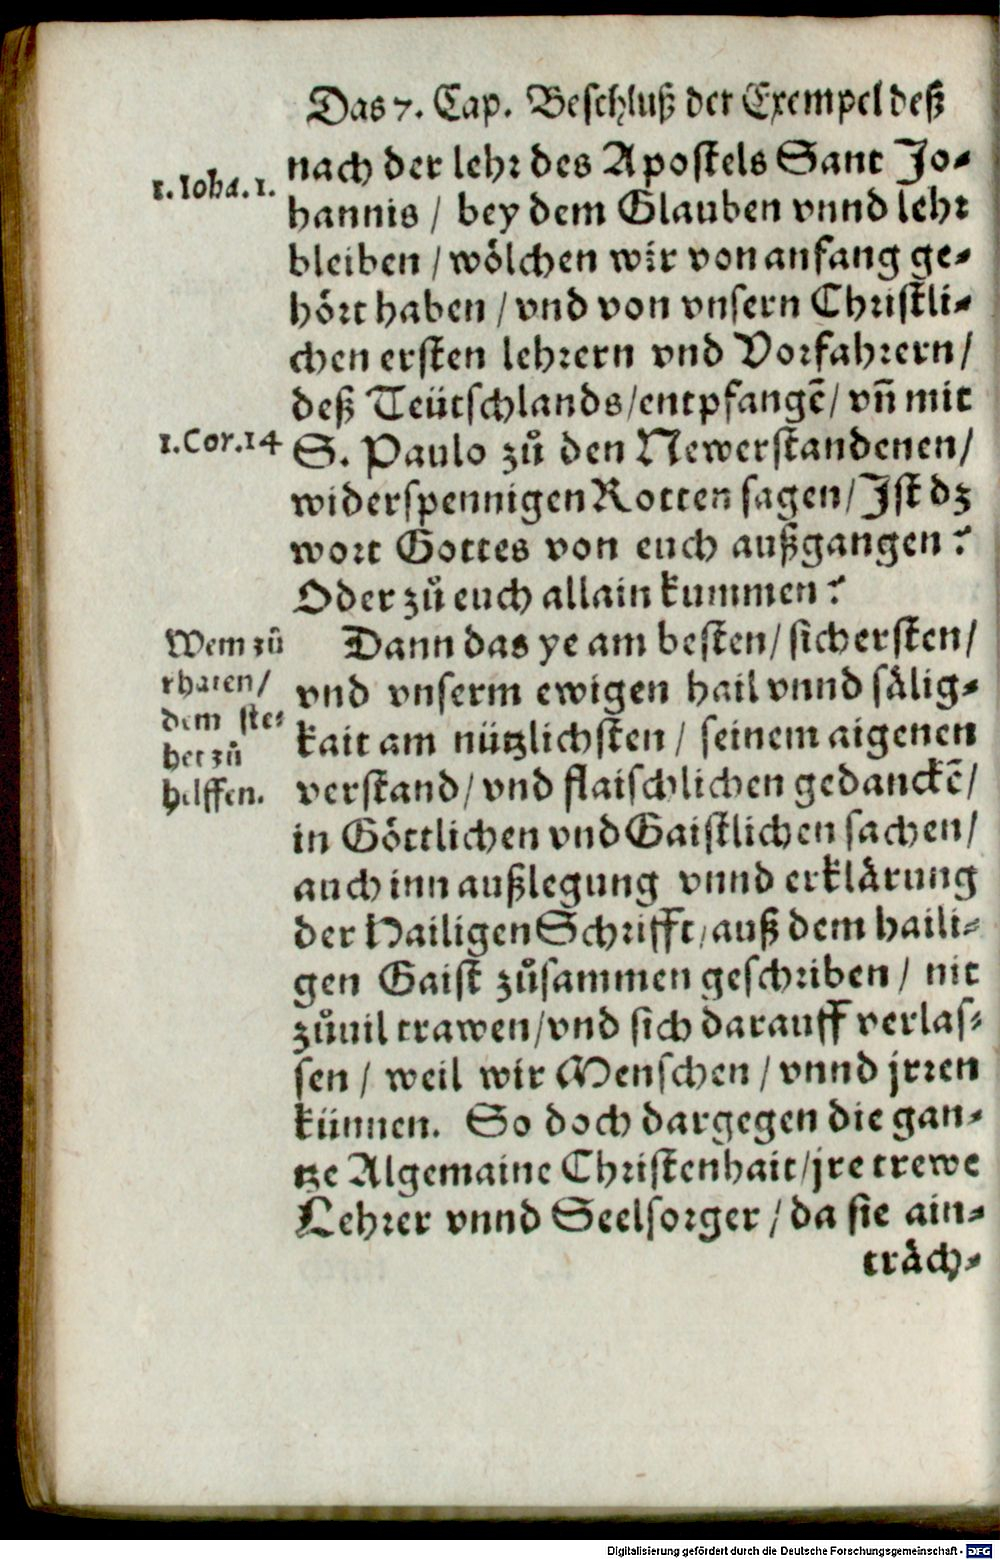 Das 7. Cap. Beschluß der Exempel deß
nach der lehr des Apostels Sant Jo-
1. Ioha. 1.
hannis / bey dem Glauben vnnd lehr
bleiben / wölchen wir von anfang ge-
hört haben / vnd von vnsern Christli-
chen ersten lehrern vnd Vorfahrern /
deß Teütschlands / entpfangē / vñ mit
1. Cor. 14
S. Paulo zů den Newerstandenen /
widerspennigen Rotten sagen / Ist dz
wort Gottes von euch außgangen?
Oder zů euch allain kummen?
Wem zů
rhaten /
dem ste-
het zů
helffen.
Dann das ye am besten / sichersten /
vnd vnserm ewigen hail vnnd sälig-
kait am nützlichsten / seinem aigenen
verstand / vnd flaischlichen gedanckē /
in Göttlichen vnd Gaistlichen sachen /
auch inn außlegung vnnd erklärung
der Hailigen Schrifft / auß dem haili-
gen Gaist zůsammen geschriben / nit
zůuil trawen / vnd sich darauff verlas-
sen / weil wir Menschen / vnnd jrren
künnen. So doch dargegen die gan-
tze Algemaine Christenhait / jre trewe
Lehrer vnnd Seelsorger / da sie ain-
träch-
Digitalisierung gefördert durch die Deutsche Forschungsgemeinschaft - DFG